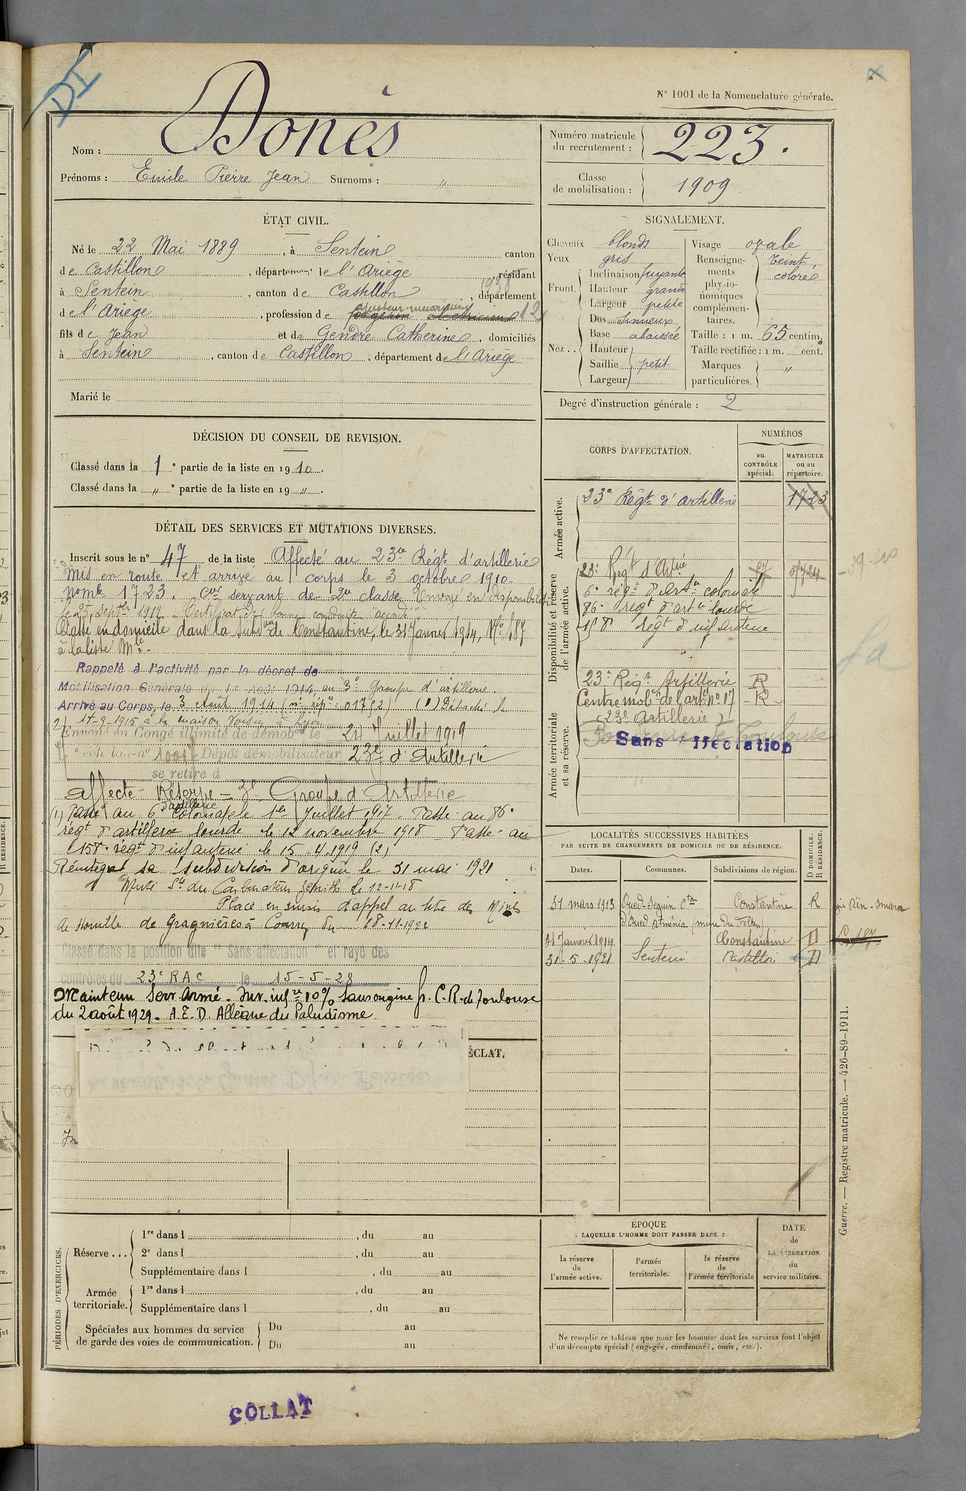 DI
N° 1001 de la Nomenclature générale.
Nom : Donès
Prénoms : Emile Pierre Jean Surnoms : "
Numéro matricule du recrutement : 223.
Classe de mobilisation : 1909
ÉTAT CIVIL.
Né le 22 Mai 1889, à Sentein canton
de Castillon, département de l'Ariège, résidant
à Sentein, canton de Castillon, département
1938
de l'Ariège, profession de ajusteur-mécanicien
fils de Jean et de Gendre Catherine, domiciliés
à Sentein, canton de Castillon, département de l'Ariège
Marié le
SIGNALEMENT.
Cheveux blonds
Yeux gris
Front. Inclinaison fuyante
Hauteur grande
Largeur petite
Nez.. Dos sinueux
Base abaissée
Hauteur
Saillie petit
Largeur
Visage ovale
Renseignements physionomiques complémentaires. Teint coloré
Taille : 1 m. 65 centim.
Taille rectifiée : 1 m. cent.
Marques particulières. "
Degré d'instruction générale : 2
DÉCISION DU CONSEIL DE REVISION.
Classé dans la 1e partie de la liste en 1910.
Classé dans la " e partie de la liste en 19 ".
DÉTAIL DES SERVICES ET MUTATIONS DIVERSES.
Inscrit sous le n° 47 de la liste Affecté au 23e Régt d'artillerie
Mis en route et arrivé au corps le 3 octobre 1910.
1723. Cer servant de 2e classe Envoyé en disponibilité
le 25 Septbre 1912 Certificat de bonne conduite accordé
Passé en domicile dans la subdon de Constantine, le 21 Janvier 1914, N° 187
à la liste Mle.
Rappelé à l'activité par le décret de
Mobilisation Générale du 1er Août 1914 au 3e Groupe d'artillerie.
Arrivé au Corps, le 3 Août 1914 Détaché le
17-9-1915 à la maison à Lyon
Envoyé en Congé illimité de démob. le 24 Juillet 1919
Dépôt démobilisateur 23e d'Artillerie
se retire à
affecté Réserve = 3e Groupe d'Artillerie
(1) Passé au 6e d'artillerie coloniale le 1er Juillet 1917. Passé au 86e
régt d'artillerie lourde le 12 novembre 1918 Passé au
158e régt d'infanterie le 15-4-1919 (2)
Réintégré sa subdivision d'origine le 31 mai 1921
Muté Sté du Carburateur Zénith le 12-11-18
Placé en sursis d'appel au titre des Mines
de houille de Gragnières à
Classé dans la position dite "Sans affectation" et rayé des
contrôles du 23e RAC le 15-5-28
Maintenu Serv. Armé. Inv. infre 10% sans origine p. C.R. de Toulouse
du 2 août 1929. A.E.D. Allègue du Paludisme.
ÉCLAT.
CORPS D'AFFECTATION.
NUMÉROS
au CONTRÔLE spécial.
MATRICULE ou au répertoire.
Armée active.
23e Régt d'artillerie 1723
Disponibilité et réserve de l'armée active.
23e Régt d'Artie
6e régt d'Artie coloniale
86e Régt d'artie lourde
158e Régt d'infanterie
Armée territoriale et sa réserve.
23e Régt Artillerie R
Centre mobon de l'artie N° 17 R
(23e Artillerie)
Sans affectation
LOCALITÉS SUCCESSIVES HABITÉES
PAR SUITE DE CHANGEMENTS DE DOMICILE OU DE RÉSIDENCE.
Dates. Communes. Subdivisions de région. D DOMICILE. R RÉSIDENCE.
31 mars 1913 Oued Seguin Constantine R
21 Janvier 1914 Constantine D
31-5-1921 Sentein Castillon D
PÉRIODES D'EXERCICES.
Réserve... 1re dans l , du au
2e dans l , du au
Supplémentaire dans l , du au
Armée territoriale. 1re dans l , du au
Supplémentaire dans l , du au
Spéciales aux hommes du service de garde des voies de communication. Du au
Du au
ÉPOQUE
À LAQUELLE L'HOMME DOIT PASSER DANS :
la réserve de l'armée active.
l'armée territoriale.
la réserve de l'armée territoriale
DATE de LA LIBÉRATION du service militaire.
Ne remplir ce tableau que pour les hommes dont les services font l'objet
d'un décompte spécial (engagés, condamnés, omis, etc.).
Guerre. — Registre matricule. — 426-89-1911.
COLLAT